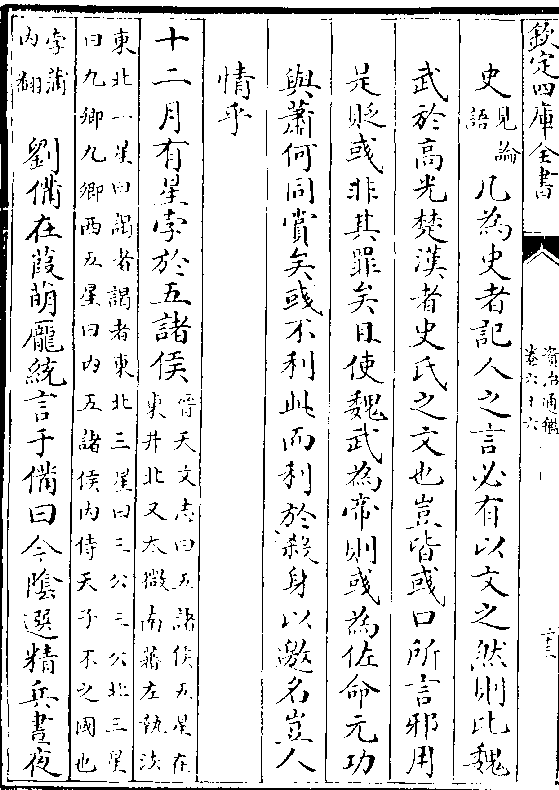 欽定四庫全書
資治通鑑
卷六十六
史見論語凡為史者記人之言必有以文之然則比魏
武於高光楚漢者史氏之文也豈皆彧口所言邪用
是貶彧非其罪矣且使魏武為帝則彧為佐命元功
與蕭何同賞矣彧不利此而利於殺身以邀名豈人
情乎
十二月有星孛於五諸侯晉天文志曰五諸侯五星在東井北又太微南蕃左執法
東北一星曰謁者謁者東北三星曰三公三公北三星曰九卿九卿西五星曰内五諸侯内侍天子不之國也
孛蒲内翻劉備在葭萌龐統言于備曰今陰選精兵晝夜